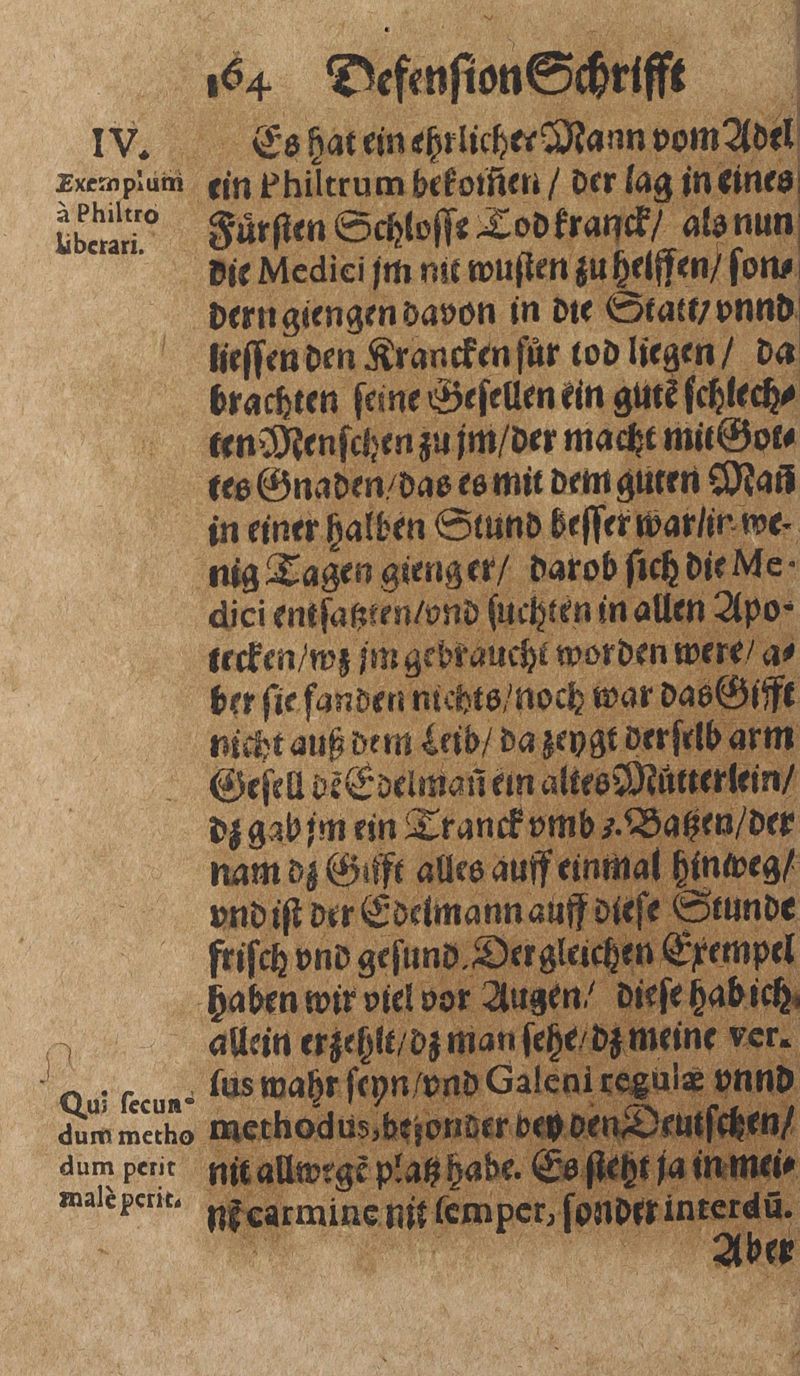 164 Defension Schrifft
IV.
Exemplum
à Philtro
liberari.
Es hat ein ehrlicher Mann vom Adel
ein Philtrum bekom̃en / der lag in eines
Fürsten Schlosse Todkranck / als nun
die Medici jm nit wusten zu helffen / son⸗
dern giengen davon in die Statt / vnnd
liessen den Krancken für tod liegen / da
brachten seine Gesellen ein gutẽ schlech⸗
ten Menschen zu jm / der macht mit Got⸗
tes Gnaden / das es mit dem guten Mañ
in einer halben Stund besser war / in we⸗
nig Tagen gieng er / darob sich die Me⸗
dici entsatzten / vnd suchten in allen Apo⸗
tecken / wz jm gebraucht worden were / a⸗
ber sie fanden nichts / noch war das Gifft
nicht auß dem Leib / da zeygt derselb arm
Gesell dẽ Edelmañ ein altes Mütterlein /
dz gab jm ein Tranck vmb 3. Batzen / der
nam dz Gifft alles auff einmal hinweg /
vnd ist der Edelmann auff diese Stunde
frisch vnd gesund. Dergleichen Exempel
haben wir viel vor Augen / diese hab ich
allein erzehlt / dz man sehe / dz meine ver⸗
sus wahr seyn / vnd Galeni regulæ vnnd
methodus, besonder bey den Deutschen /
nit allwegẽ platz habe. Es steht ja in mei⸗
nẽ carmine nit semper, sonder interdũ.
Qui secun⸗
dum metho
dum perit
malè perit.
Aber